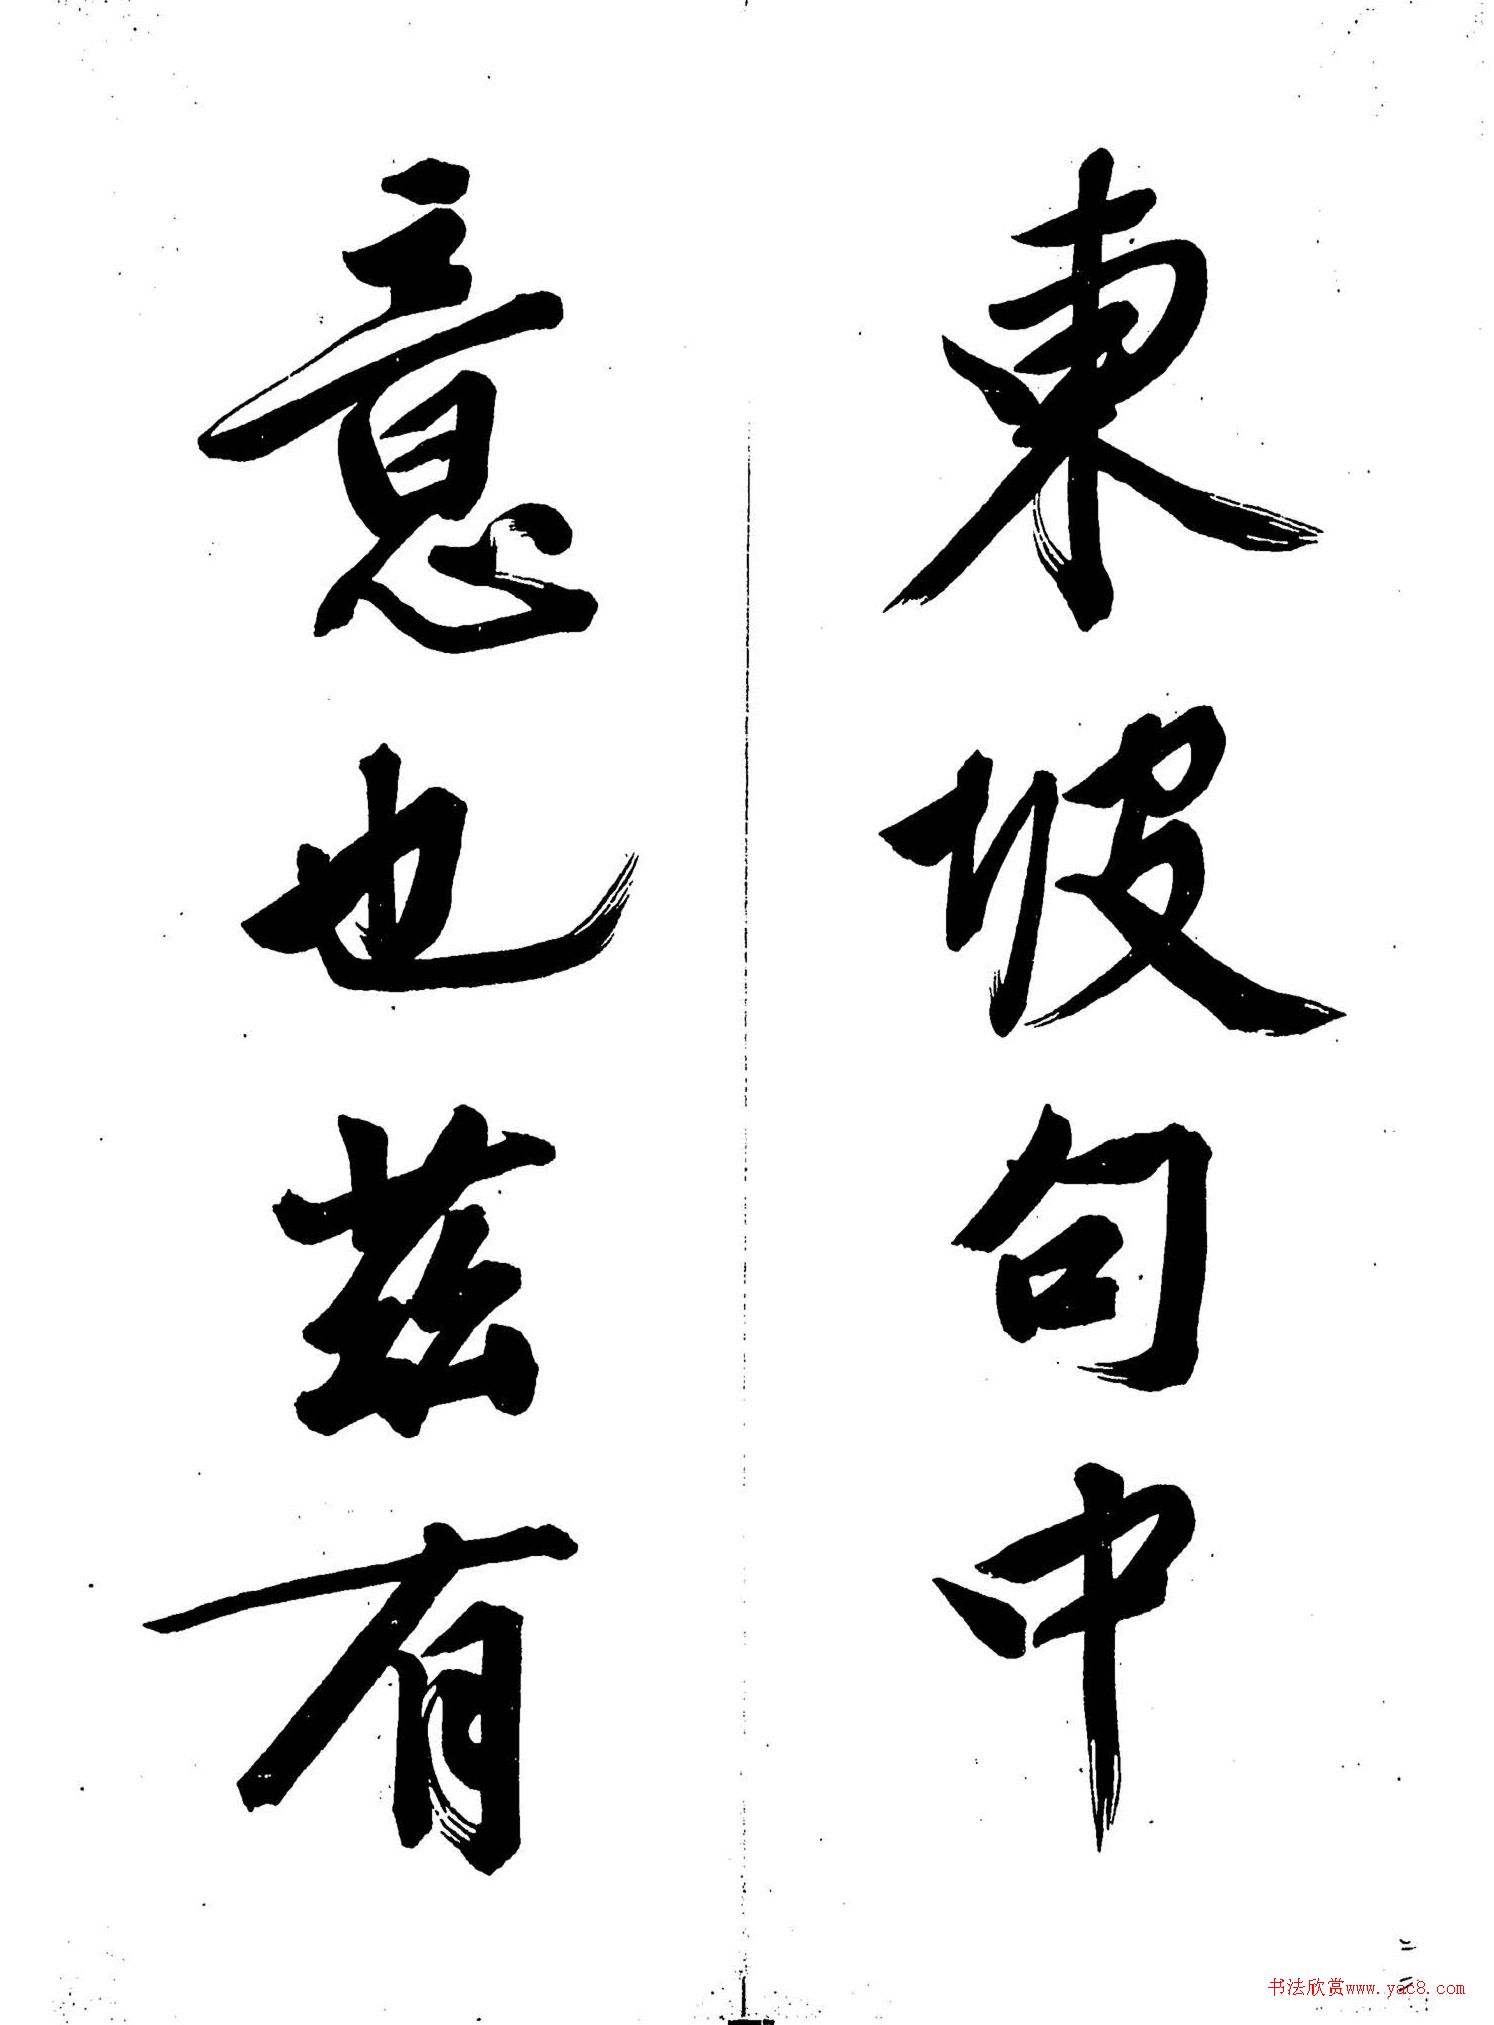 東坡句中
意也兹有
书法欣赏www.yac8.com